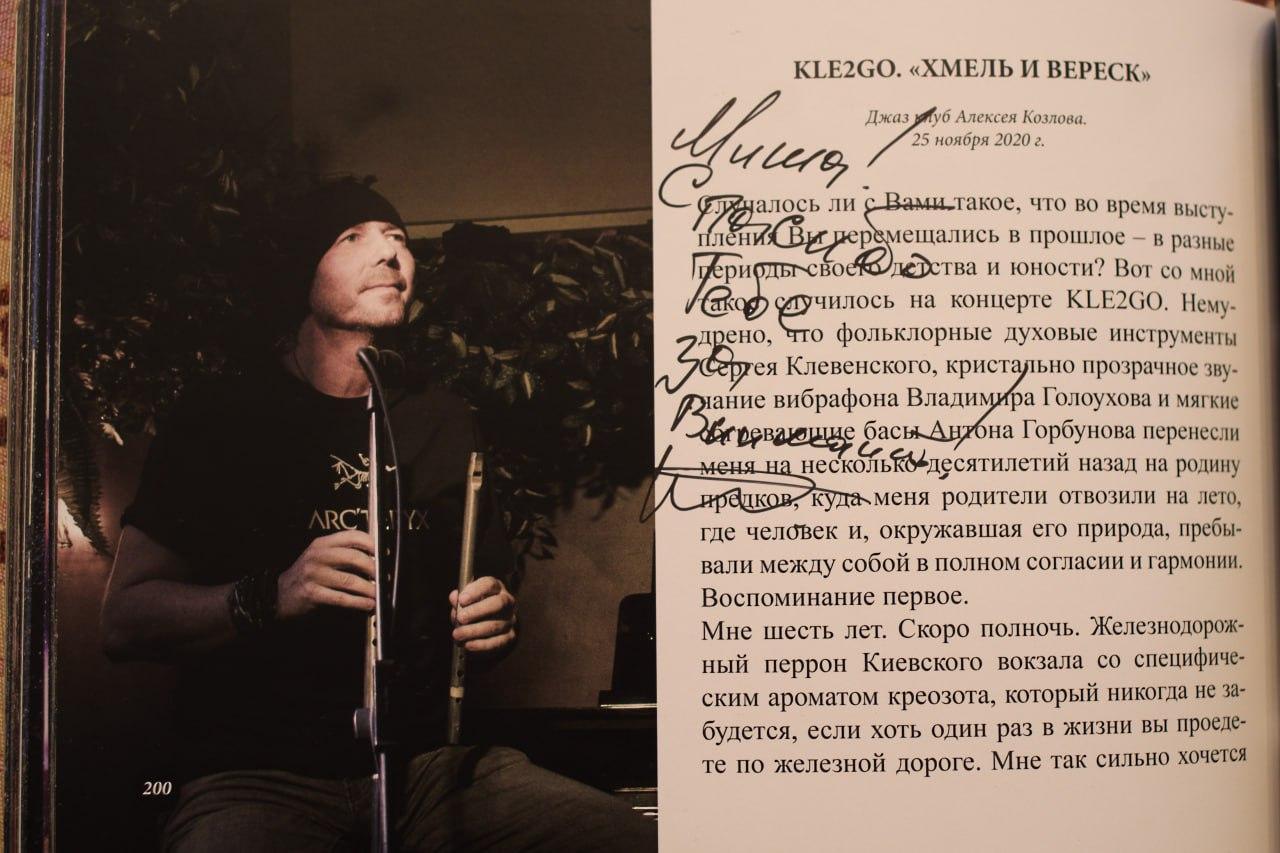 ARC'TERYX
200
KLE2GO. «ХМЕЛЬ И ВЕРЕСК»
Джаз клуб Алексея Козлова.
25 ноября 2020 г.
Случалось ли с Вами такое, что во время высту-
пления Вы перемещались в прошлое – в разные
периоды своего детства и юности? Вот со мной
такое случилось на концерте KLE2GO. Нему-
дрено, что фольклорные духовые инструменты
Сергея Клевенского, кристально прозрачное зву-
чание вибрафона Владимира Голоухова и мягкие
обгревающие басы Антона Горбунова перенесли
меня на несколько десятилетий назад на родину
предков, куда меня родители отвозили на лето,
где человек и, окружавшая его природа, пребы-
вали между собой в полном согласии и гармонии.
Воспоминание первое.
Мне шесть лет. Скоро полночь. Железнодорож-
ный перрон Киевского вокзала со специфиче-
ским ароматом креозота, который никогда не за-
будется, если хоть один раз в жизни вы проеде-
те по железной дороге. Мне так сильно хочется
Миша,
Спасибо
Тебе
за
Внимание